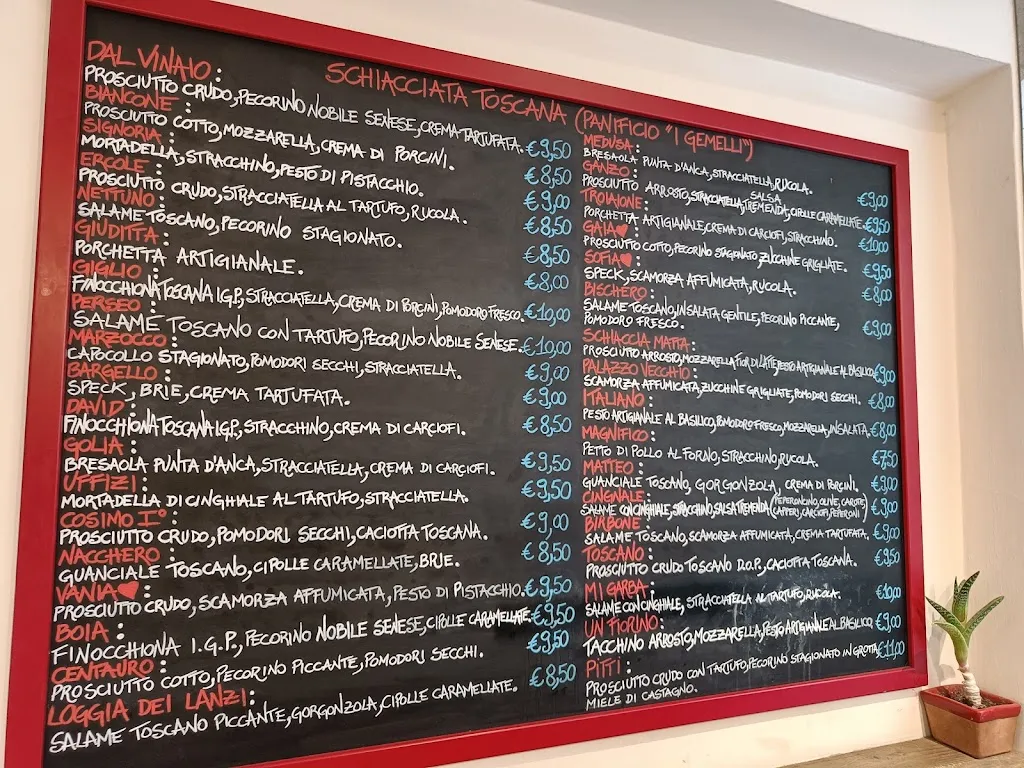 SCHIACCIATA TOSCANA (PANIFICIO "I GEMELLI")
DAL VINAIO:
PROSCIUTTO CRUDO, PECORINO NOBILE SENESE, CREMA TARTUFATA. €9,50
BIANCONE:
PROSCIUTTO COTTO, MOZZARELLA, CREMA DI PORCINI. €8,50
SIGNORIA:
MORTADELLA, STRACCHINO, PESTO DI PISTACCHIO. €9,00
ERCOLE:
PROSCIUTTO CRUDO, STRACCIATELLA AL TARTUFO, RUCOLA. €8,50
NETTUNO:
SALAME TOSCANO, PECORINO STAGIONATO. €8,50
GIUDITTA:
PORCHETTA ARTIGIANALE. €8,00
GIGLIO:
FINOCCHIONA TOSCANA I.G.P., STRACCIATELLA, CREMA DI PORCINI, POMODORO FRESCO. €10,00
PERSEO:
SALAME TOSCANO CON TARTUFO, PECORINO NOBILE SENESE. €10,00
MARZOCCO:
CAPOCOLLO STAGIONATO, POMODORI SECCHI, STRACCIATELLA. €9,00
BARGELLO:
SPECK, BRIE, CREMA TARTUFATA. €9,00
DAVID:
FINOCCHIONA TOSCANA I.G.P., STRACCHINO, CREMA DI CARCIOFI. €8,50
GOLIA:
BRESAOLA PUNTA D'ANCA, STRACCIATELLA, CREMA DI CARCIOFI. €9,50
UFFIZI:
MORTADELLA DI CINGHIALE AL TARTUFO, STRACCIATELLA. €9,50
COSIMO I°:
PROSCIUTTO CRUDO, POMODORI SECCHI, CACIOTTA TOSCANA. €9,00
NACCHERO:
GUANCIALE TOSCANO, CIPOLLE CARAMELLATE, BRIE. €8,50
VANIA♥:
PROSCIUTTO CRUDO, SCAMORZA AFFUMICATA, PESTO DI PISTACCHIO. €9,50
BOIA:
FINOCCHIONA I.G.P., PECORINO NOBILE SENESE, CIPOLLE CARAMELLATE. €9,50
CENTAURO:
PROSCIUTTO COTTO, PECORINO PICCANTE, POMODORI SECCHI. €9,50
LOGGIA DEI LANZI:
SALAME TOSCANO PICCANTE, GORGONZOLA, CIPOLLE CARAMELLATE. €8,50
MEDUSA:
BRESAOLA PUNTA D'ANCA, STRACCIATELLA, RUCOLA. €9,00
GANZO:
PROSCIUTTO ARROSTO, STRACCIATELLA, SALSA TREMENDA, CIPOLLE CARAMELLATE. €9,50
TROIAIONE:
PORCHETTA ARTIGIANALE, CREMA DI CARCIOFI, STRACCHINO. €10,00
GAIA♥:
PROSCIUTTO COTTO, PECORINO STAGIONATO, ZUCCHINE GRIGLIATE. €9,50
SOFIA♥:
SPECK, SCAMORZA AFFUMICATA, RUCOLA. €8,00
BISCHERO:
SALAME TOSCANO, INSALATA GENTILE, PECORINO PICCANTE,
POMODORO FRESCO. €9,00
SCHIACCIA MATTA:
PROSCIUTTO ARROSTO, MOZZARELLA FIOR DI LATTE, PESTO ARTIGIANALE AL BASILICO. €9,00
PALAZZO VECCHIO:
SCAMORZA AFFUMICATA, ZUCCHINE GRIGLIATE, POMODORI SECCHI. €8,00
ITALIANO:
PESTO ARTIGIANALE AL BASILICO, POMODORO FRESCO, MOZZARELLA, INSALATA. €8,00
MAGNIFICO:
PETTO DI POLLO AL FORNO, STRACCHINO, RUCOLA. €7,50
MATTEO:
GUANCIALE TOSCANO, GORGONZOLA, CREMA DI PORCINI. €9,00
CINGHIALE:
SALAME CON CINGHIALE, STRACCHINO, SALSA TREMENDA (PEPERONCINO, OLIVE, CAROTE, CAPPERI, CARCIOFI, PEPERONI) €9,00
BIRBONE:
SALAME TOSCANO, SCAMORZA AFFUMICATA, CREMA TARTUFATA. €9,00
TOSCANO:
PROSCIUTTO CRUDO TOSCANO D.O.P., CACIOTTA TOSCANA. €9,50
MI GARBA:
SALAME CON CINGHIALE, STRACCIATELLA AL TARTUFO, RUCOLA. €10,00
UN FIORINO:
TACCHINO ARROSTO, MOZZARELLA, PESTO ARTIGIANALE AL BASILICO. €9,00
PITI:
PROSCIUTTO CRUDO CON TARTUFO, PECORINO STAGIONATO IN GROTTA, €11,00
MIELE DI CASTAGNO.